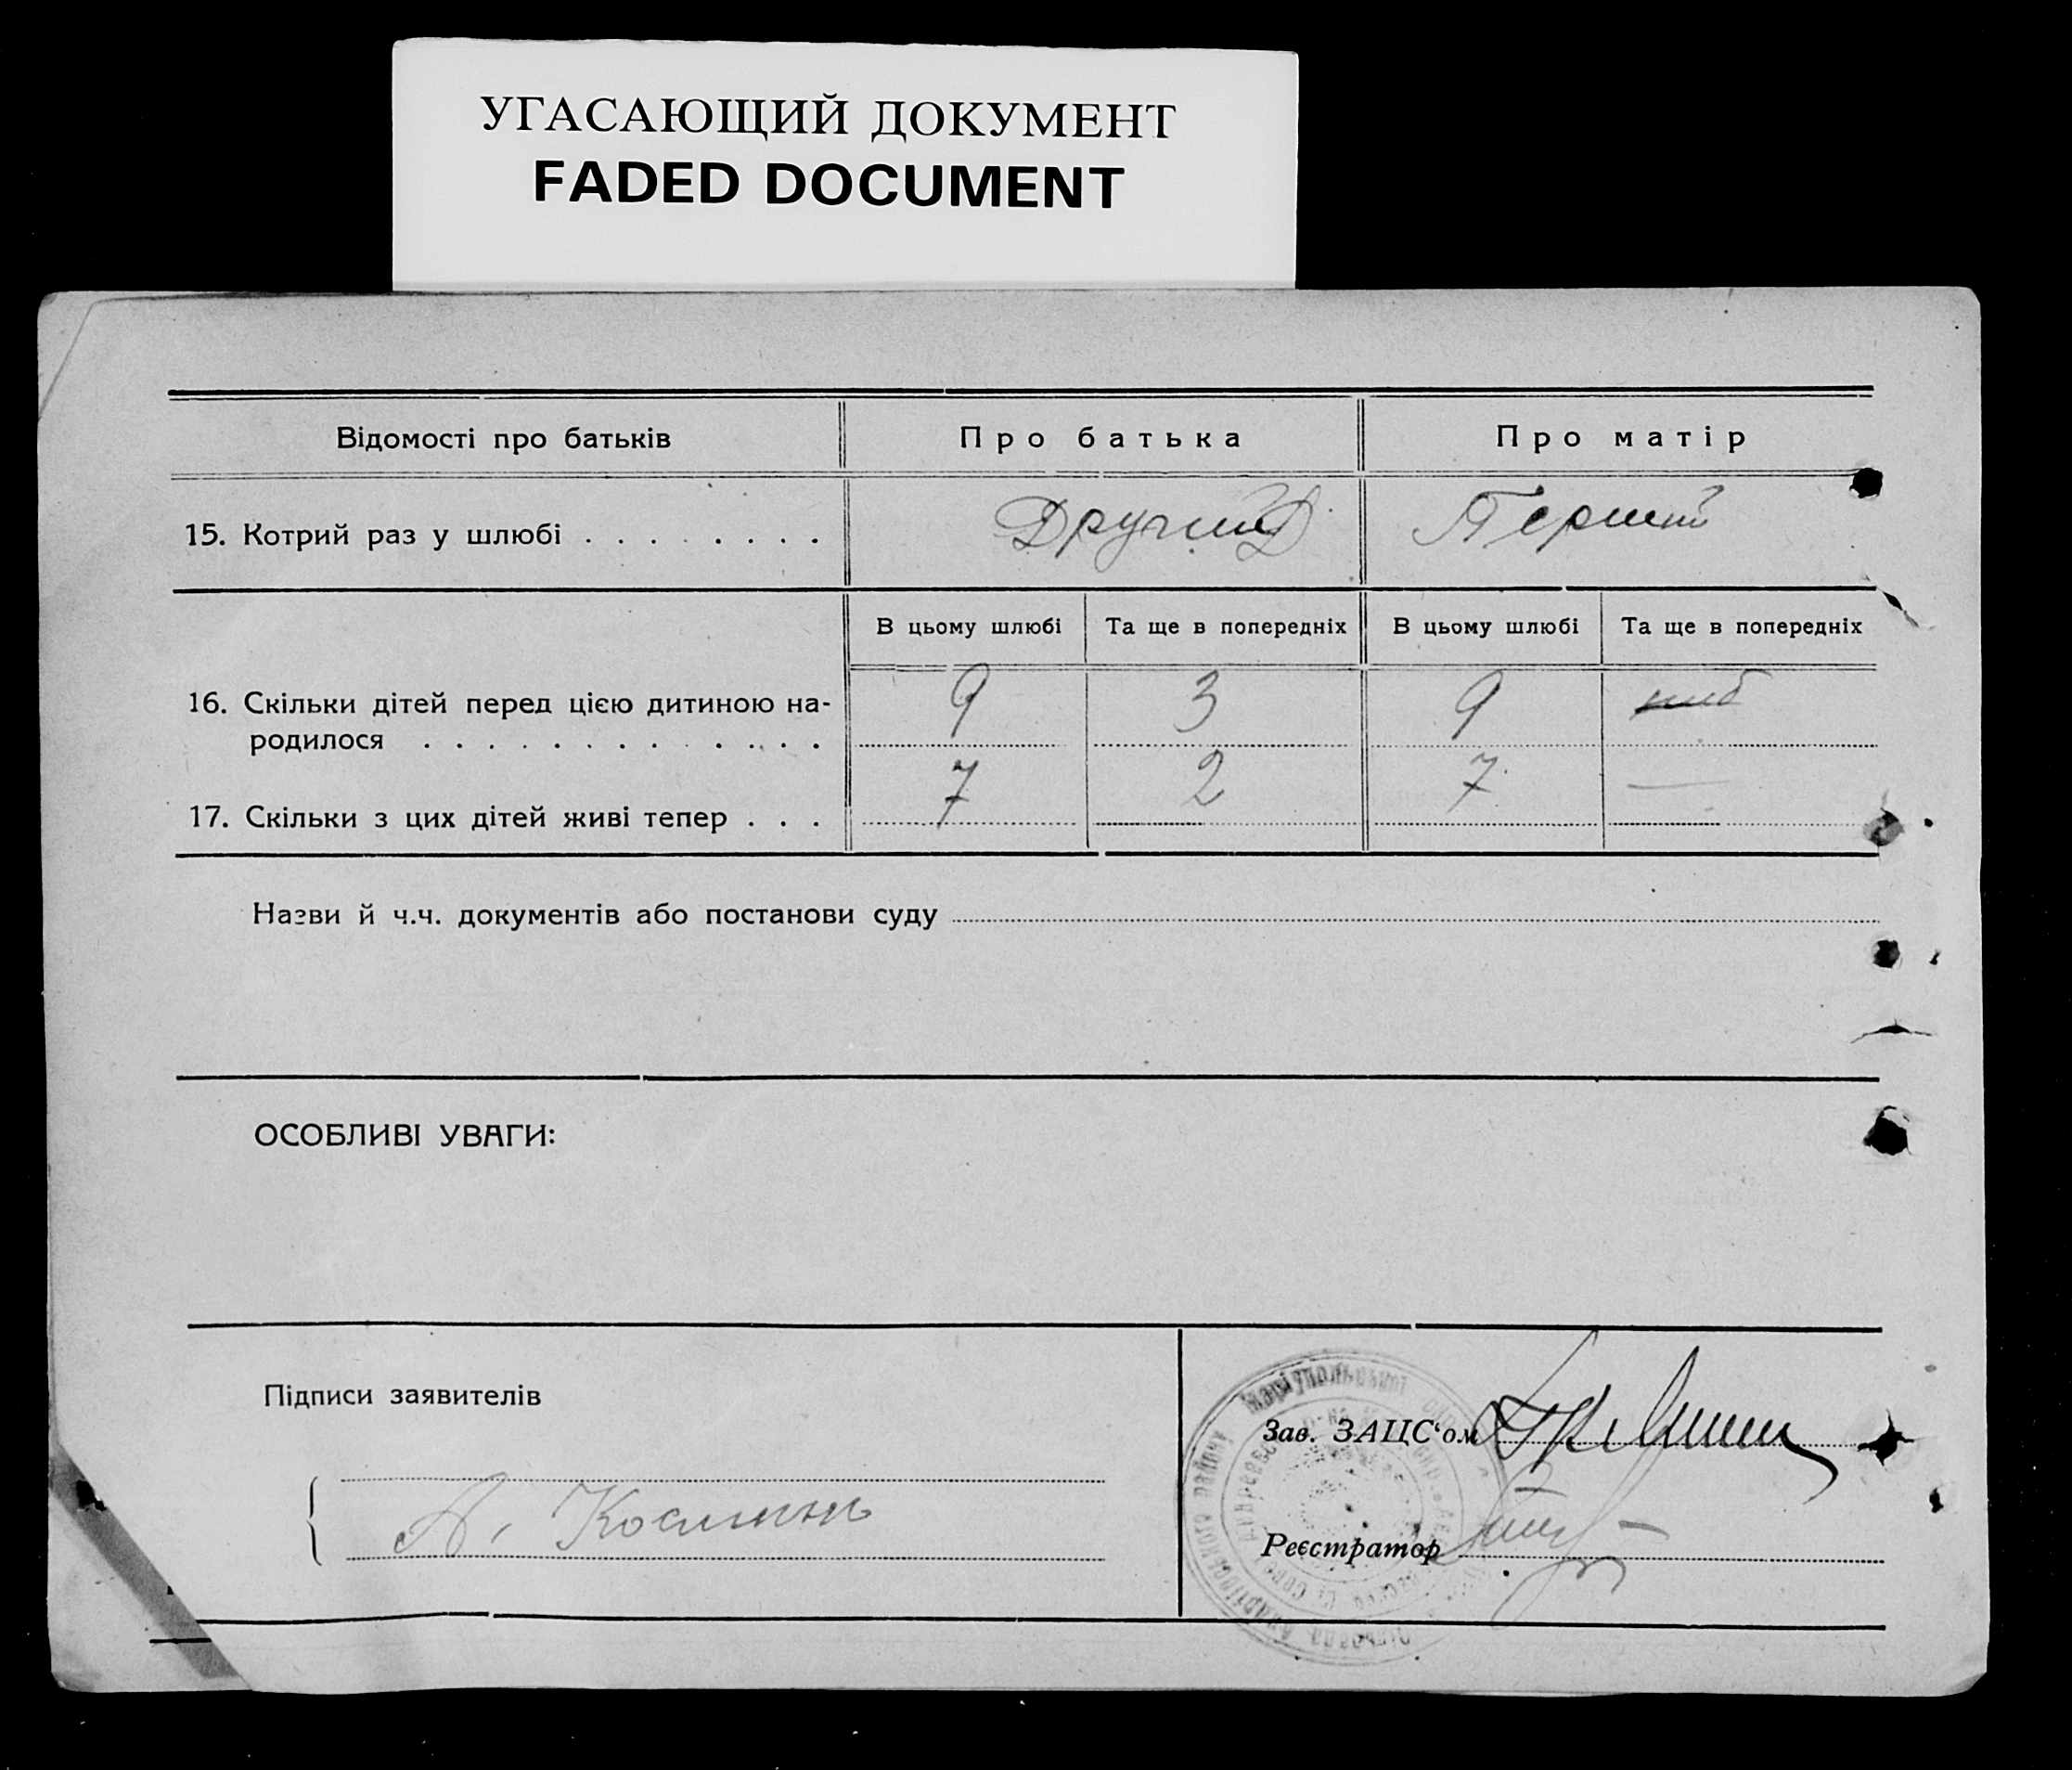 УГАСАЮЩИЙ ДОКУМЕНТ
FADED DOCUMENT
Відомості про батьків
Про батька
Про матір
15. Котрий раз у шлюбі
Другий
Перший
В цьому шлюбі
Та ще в попередніх
В цьому шлюбі
Та ще в попередніх
16. Скільки дітей перед цією дитиною на-
родилося
9
3
9
17. Скільки з цих дітей живі тепер
7
2
7
—
Назви й ч.ч. документів або постанови суду
ОСОБЛИВІ УВАГИ:
Підписи заявителів
А.
Зав. ЗАЦС‘ом
Реєстратор
району Маріупольської